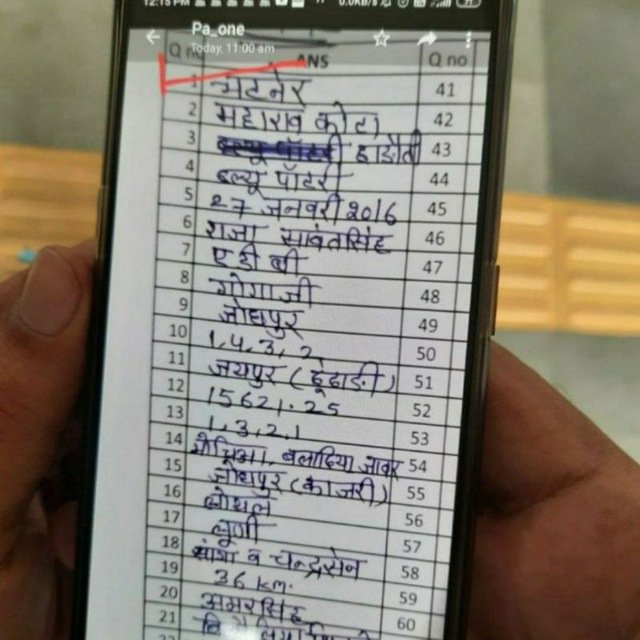 12:15 PM
Pa_one
Today, 11:00 am
Q no ANS Q no
1 भटनेर 41
2 महाराव कोटा 42
3 हाडौती 43
4 ब्ल्यू पॉटरी 44
5 27 जनवरी 2016 45
6 राजा सावंतसिंह 46
7 ए डी बी 47
8 गोगाजी 48
9 जोधपुर 49
10 1,4,3,2 50
11 जयपुर (ढूंढाडी) 51
12 15621.25 52
13 1,3,2,1 53
14 जावर 54
15 जोधपुर (काजरी) 55
16 56
17 लूणी 57
18 व चन्द्रसेन 58
19 36 km. 59
20 अमरसिंह 60
21